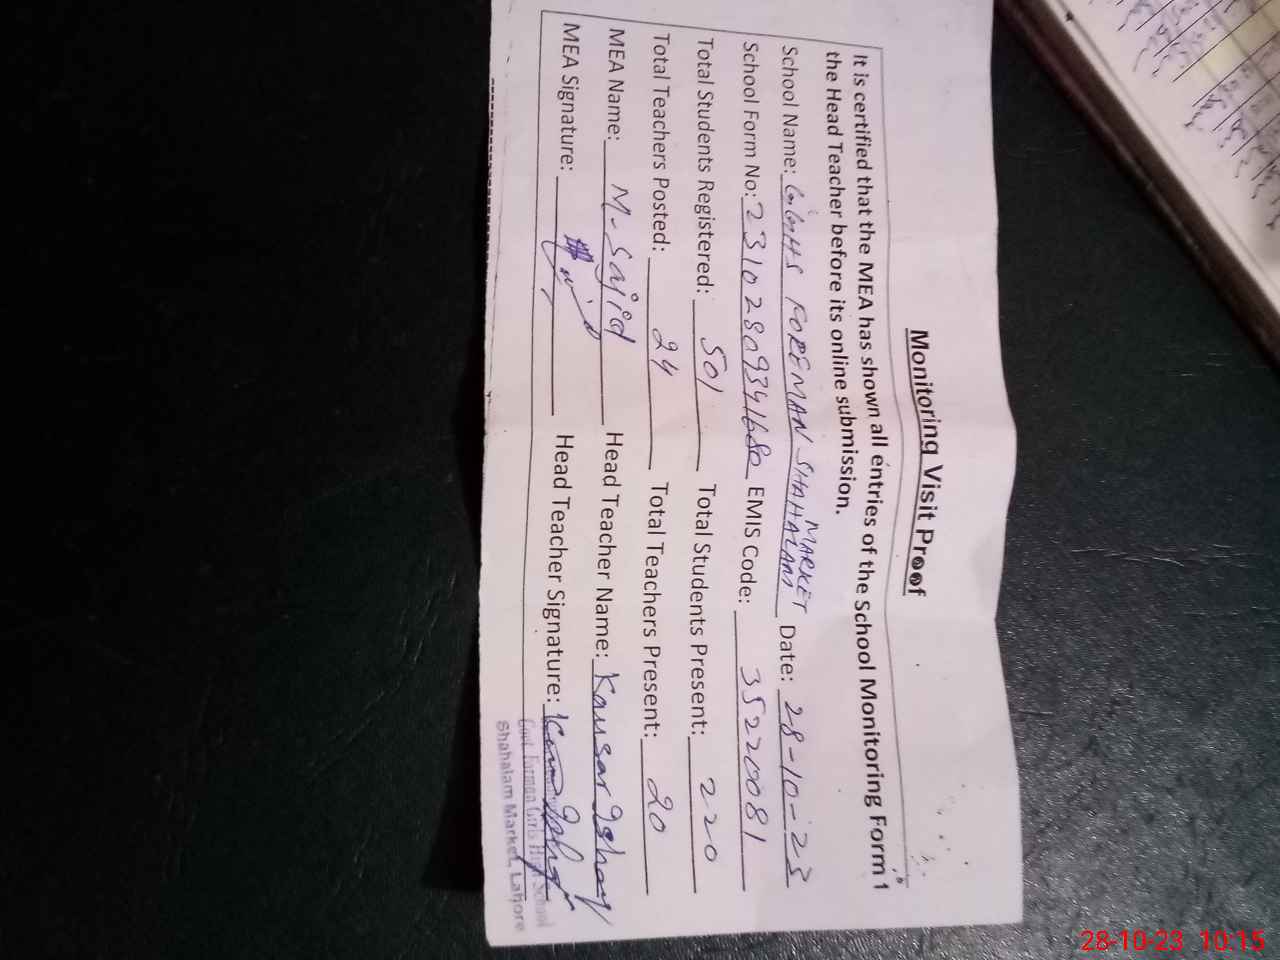 Monitoring Visit Proof
It is certified that the MEA has shown all entries of the School Monitoring Form to
the Head Teacher before its online submission.
MARKET
School Name: GGHS FOREMAN SHAHALAM Date: 28-10-23
School Form No: 23102809341680 EMIS Code: 35220081
Total Students Registered: 501 Total Students Present: 220
Total Teachers Posted: 24 Total Teachers Present: 20
MEA Name: M. Sajid Head Teacher Name: Kausar Ishaq
MEA Signature: Head Teacher Signature:
Govt. Girls High School
Shahalam Market, Lahore
28-10-23 10:15